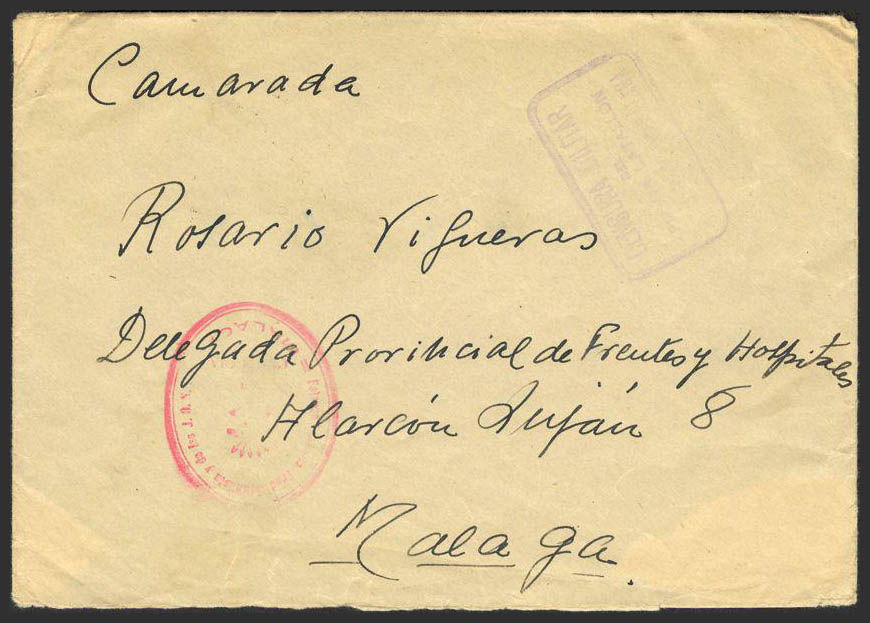 Camarada
CENSURA MILITAR
BATALLON
Rosario Vigueras
Delegada Provincial de Frentes y Hospitales
Alarcón Luján 8
Malaga.
y de las J.O.N.